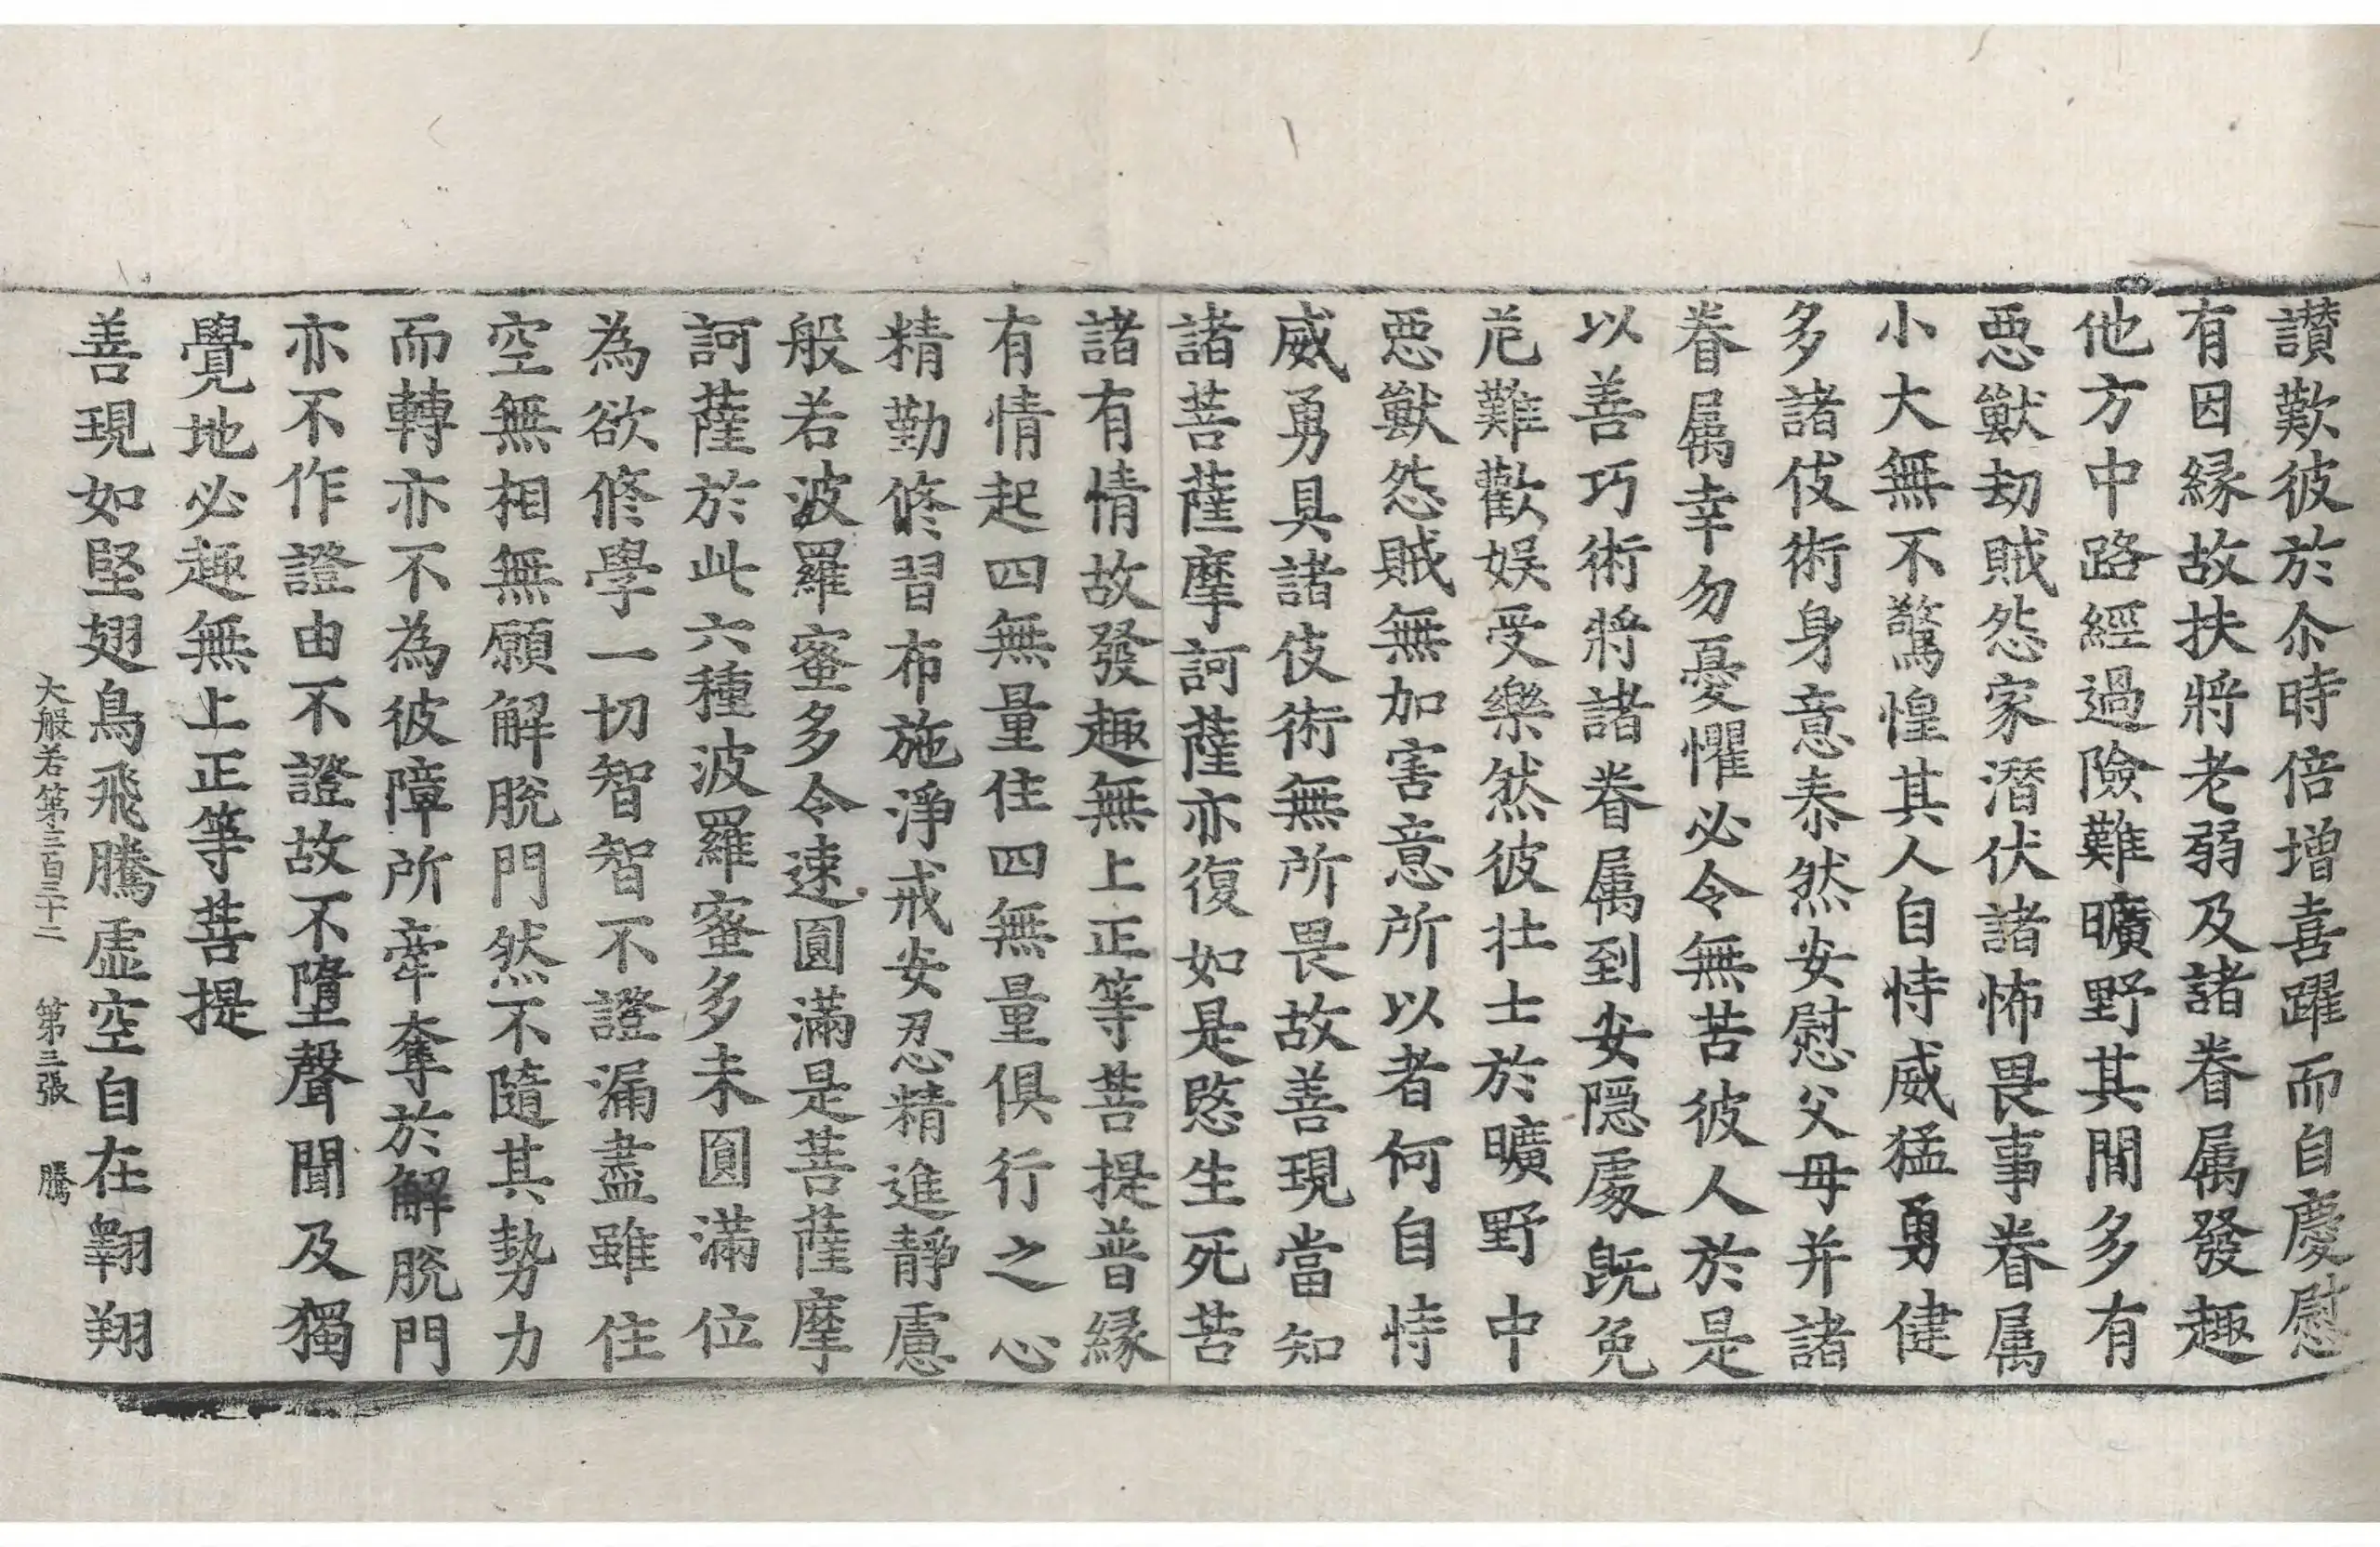 讃歎彼於尒時倍增喜躍而自慶慰
有因縁故扶將老弱及諸眷属發趣
他方中路經過險難曠野其間多有
惡獸劫賊怨家潛伏諸怖畏事眷属
小大無不驚惶其人自恃威猛勇健
多諸伎術身意泰然安慰父母并諸
眷属幸勿憂懼必令無苦彼人於是
以善巧術將諸眷属到安隠處既免
危難歡娯受樂然彼壮士於曠野中
惡獸怨賊無加害意所以者何自恃
威勇具諸伎術無所畏故善現當知
諸菩薩摩訶薩亦復如是愍生死苦
諸有情故發趣無上正等菩提普縁
有情起四無量住四無量俱行之心
精勤修習布施淨戒安忍精進靜慮
般若波羅蜜多令速圓滿是菩薩摩
訶薩於此六種波羅蜜多未圓滿位
為欲修學一切智智不證漏盡雖住
空無相無願解脫門然不隨其勢力
而轉亦不為彼障所牽奪於解脫門
亦不作證由不證故不墮聲聞及獨
覺地必趣無上正等菩提
善現如堅翅鳥飛騰虛空自在翱翔
大般若第三百三十二 第三張 騰